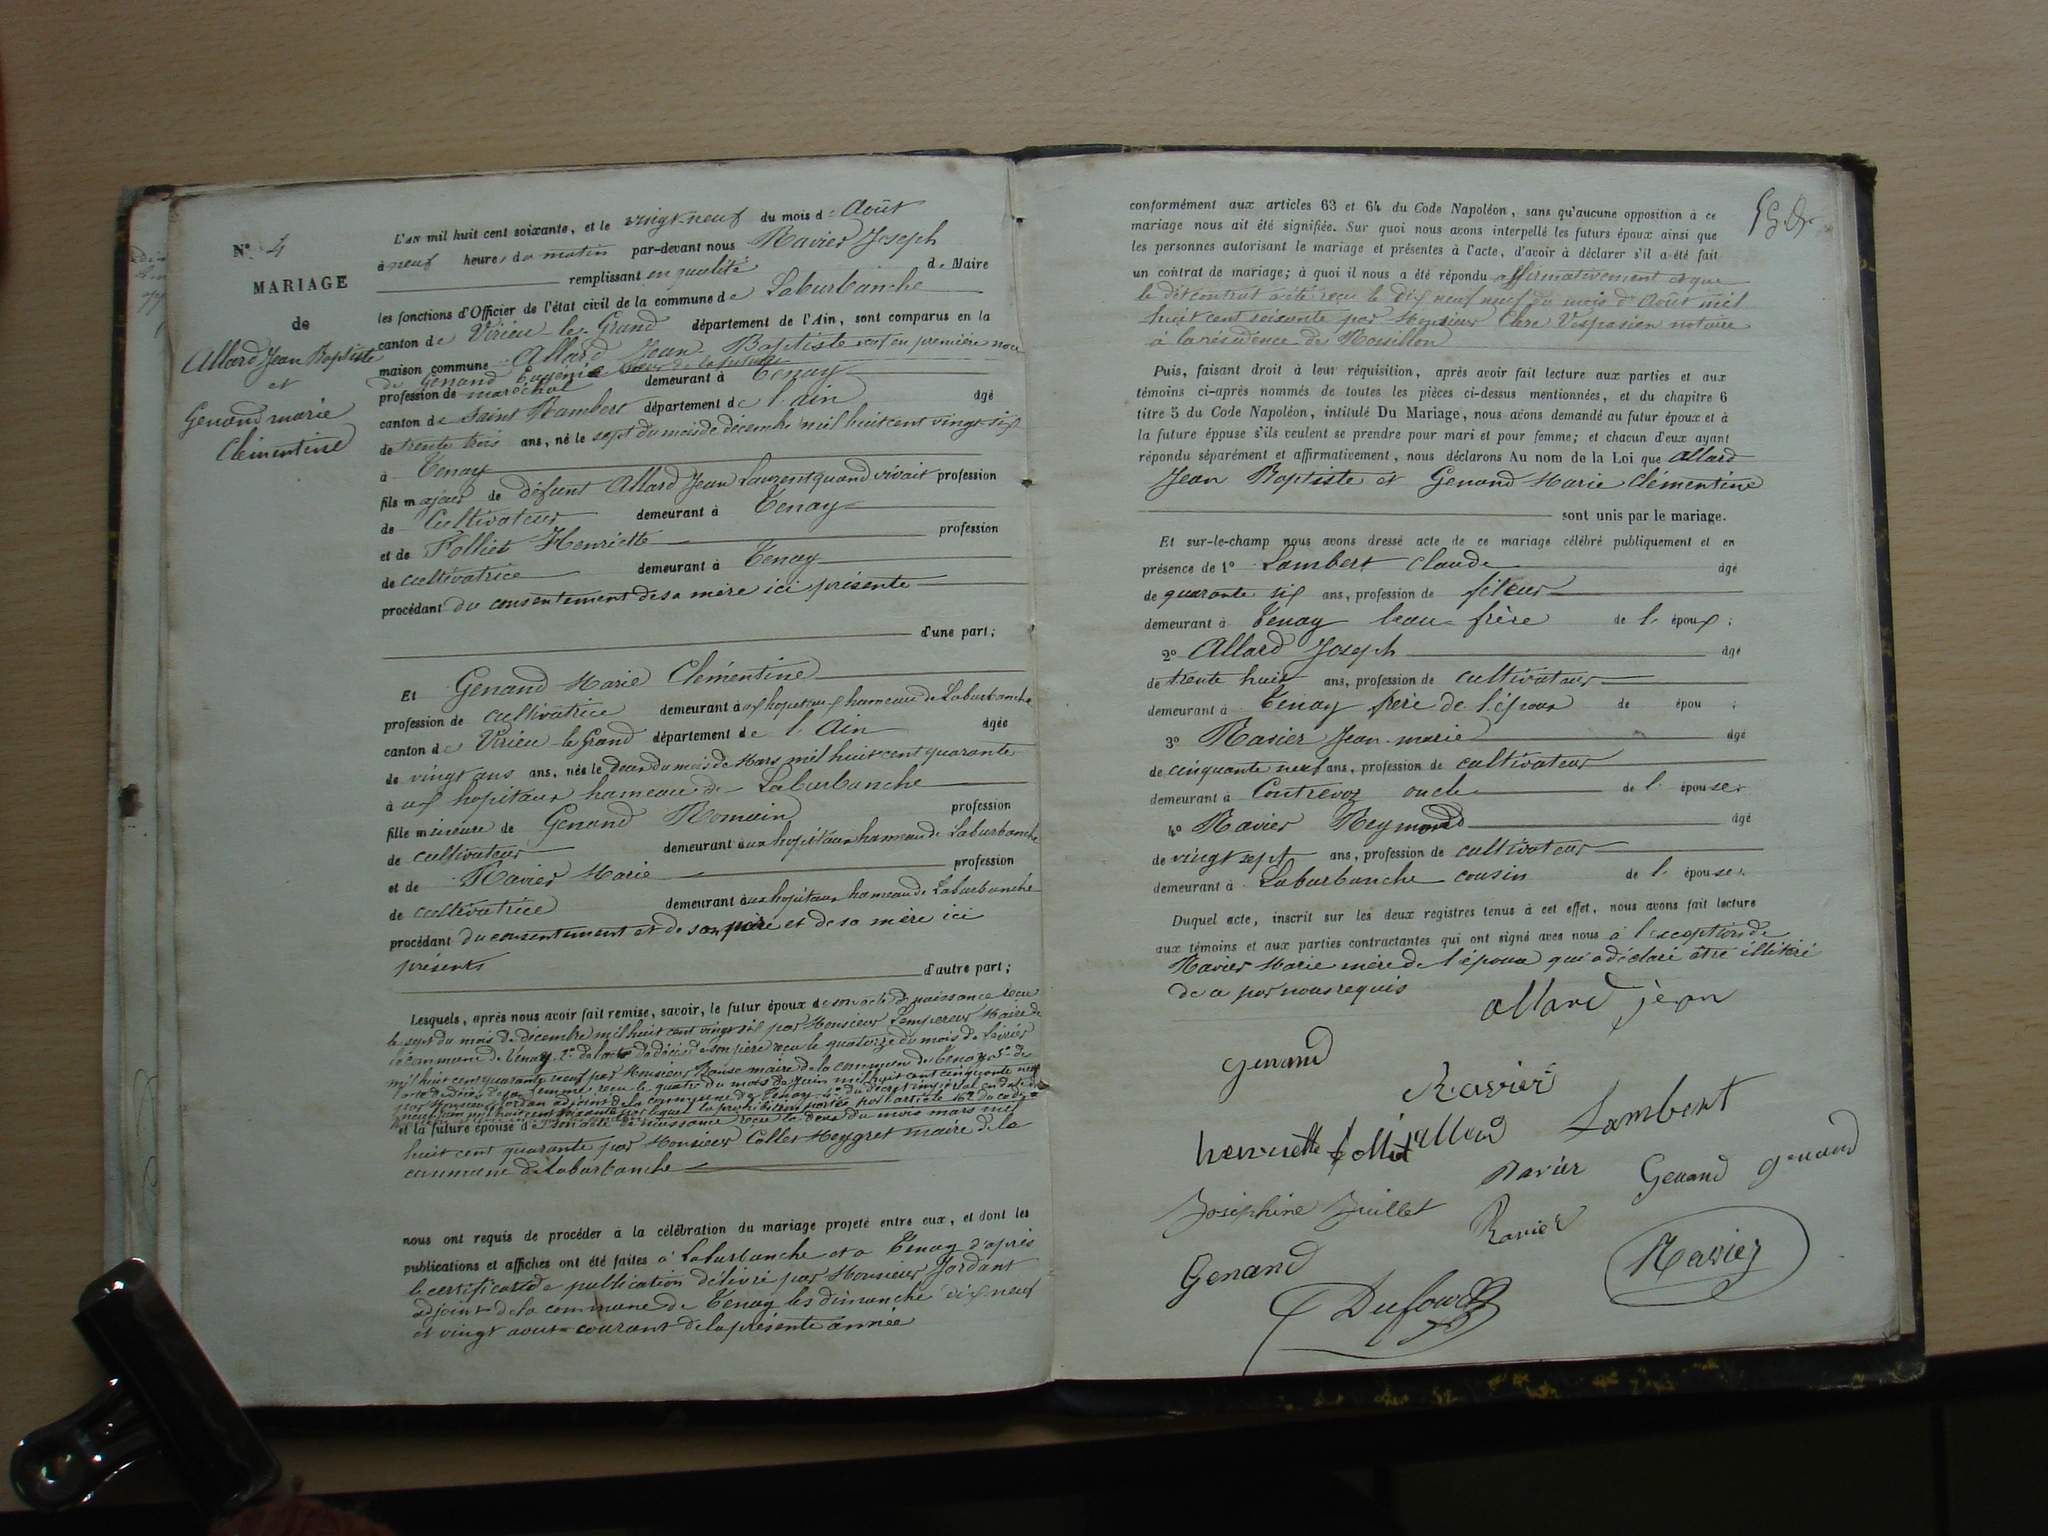 N° 4
MARIAGE
de
Allard Jean Baptiste
et
Genand marie
Clémentine
L'an mil huit cent soixante, et le vingt-neuf du mois d'Août
à neuf heures du matin par-devant nous Ravier Joseph
remplissant en qualité de Maire
les fonctions d'Officier de l'état civil de la commune de Laburbanche
canton de Virieu-le-Grand département de l'Ain, sont comparus en la
maison commune Allard Jean Baptiste veuf en première noce
de Genand Eugénie soeur de la future
profession de maréchal demeurant à Tenay
canton de Saint Rambert département de l'ain âgé
de trente trois ans, né le sept du mois de décembre mil huit cent vingt-six
à Tenay
fils majeur de défunt Allard Jean Laurent quand vivait profession
de Cultivateur demeurant à Tenay
et de Folliet Henriette profession
de cultivatrice demeurant à Tenay
procédant du consentement de sa mère ici présente
d'une part;
Et Genand Marie Clémentine
profession de cultivatrice demeurant aux hopitaux hameau de Laburbanche
canton de Virieu-le-Grand département de l'Ain âgée
de vingt ans ans, née le deux du mois de Mars mil huit cent quarante
à aux hopitaux hameau de Laburbanche
fille mineure de Genand Romain profession
de cultivateur demeurant aux hopitaux hameau de Laburbanche
et de Ravier Marie profession
de cultivatrice demeurant aux hopitaux hameau de Laburbanche
procédant du consentement et de son père et de sa mère ici
présents
d'autre part;
Lesquels, après nous avoir fait remise, savoir, le futur époux de son acte de naissance reçu
le sept du mois de décembre mil huit cent vingt six par Monsieur Lempereur Maire de
la commune de Tenay 2° de l'acte de décès de son père reçu le quatorze du mois de février
mil huit cent quarante neuf par Monsieur maire de la commune de Tenay 3° de
l'acte de décès de sa femme reçu le quatre du mois de juin mil huit cent cinquante neuf
par Monsieur Jordan adjoint de la commune de Tenay 4° du décret impérial en date du
juin mil huit cent soixante par lequel la prohibition portée par l'article 162 du code
et la future épouse de son acte de naissance reçu le deux du mois mars mil
huit cent quarante par Monsieur Collet Meygret maire de la
commune de Laburbanche
nous ont requis de procéder à la célébration du mariage projeté entre eux, et dont les
publications et affiches ont été faites à Laburbanche et a Tenay d'après
le certificat de publication délivré par Monsieur Jordant
adjoint de la commune de Tenay les dimanche dix neuf
et vingt aout courant de la présente année
conformément aux articles 63 et 64 du Code Napoléon, sans qu'aucune opposition à ce
mariage nous ait été signifiée. Sur quoi nous avons interpellé les futurs époux ainsi que
les personnes autorisant le mariage et présentes à l'acte, d'avoir à déclarer s'il a été fait
un contrat de mariage; à quoi il nous a été répondu affirmativement et que
le dit contrat a été reçu le dix neuf neuf du mois d'Août mil
huit cent soixante par Monsieur Clerc Vespasien notaire
à la résidence de Rossillon
Puis, faisant droit à leur réquisition, après avoir fait lecture aux parties et aux
témoins ci-après nommés de toutes les pièces ci-dessus mentionnées, et du chapitre 6
titre 5 du Code Napoléon, intitulé Du Mariage, nous avons demandé au futur époux et à
la future épouse s'ils veulent se prendre pour mari et pour femme; et chacun d'eux ayant
répondu séparément et affirmativement, nous déclarons Au nom de la Loi que Allard
Jean Baptiste et Genand Marie Clémentine
sont unis par le mariage.
Et sur-le-champ nous avons dressé acte de ce mariage célébré publiquement et en
présence de 1° Lambert Claude âgé
de quarante six ans, profession de fileur
demeurant à Tenay beau-frère de l'époux;
2° Allard Joseph âgé
de trente huit ans, profession de cultivateur
demeurant à Tenay frère de l'époux de épou ;
3° Ravier Jean-marie âgé
de cinquante neuf ans, profession de cultivateur
demeurant à Contrevoz oncle de l'épouse.
4° Ravier Reymond âgé
de vingt sept ans, profession de cultivateur
demeurant à Laburbanche cousin de l'épouse.
Duquel acte, inscrit sur les deux registres tenus à cet effet, nous avons fait lecture
aux témoins et aux parties contractantes qui ont signé avec nous à l'exception de
Ravier Marie mère de l'épouse qui a déclaré être illitéré
de ce par nous requis
allard jean
Genand
Ravier
henriette folliet allard Lambert
Joséphine Juillet Ravier Genand genand
Ravier
Genand Ravier
Dufour